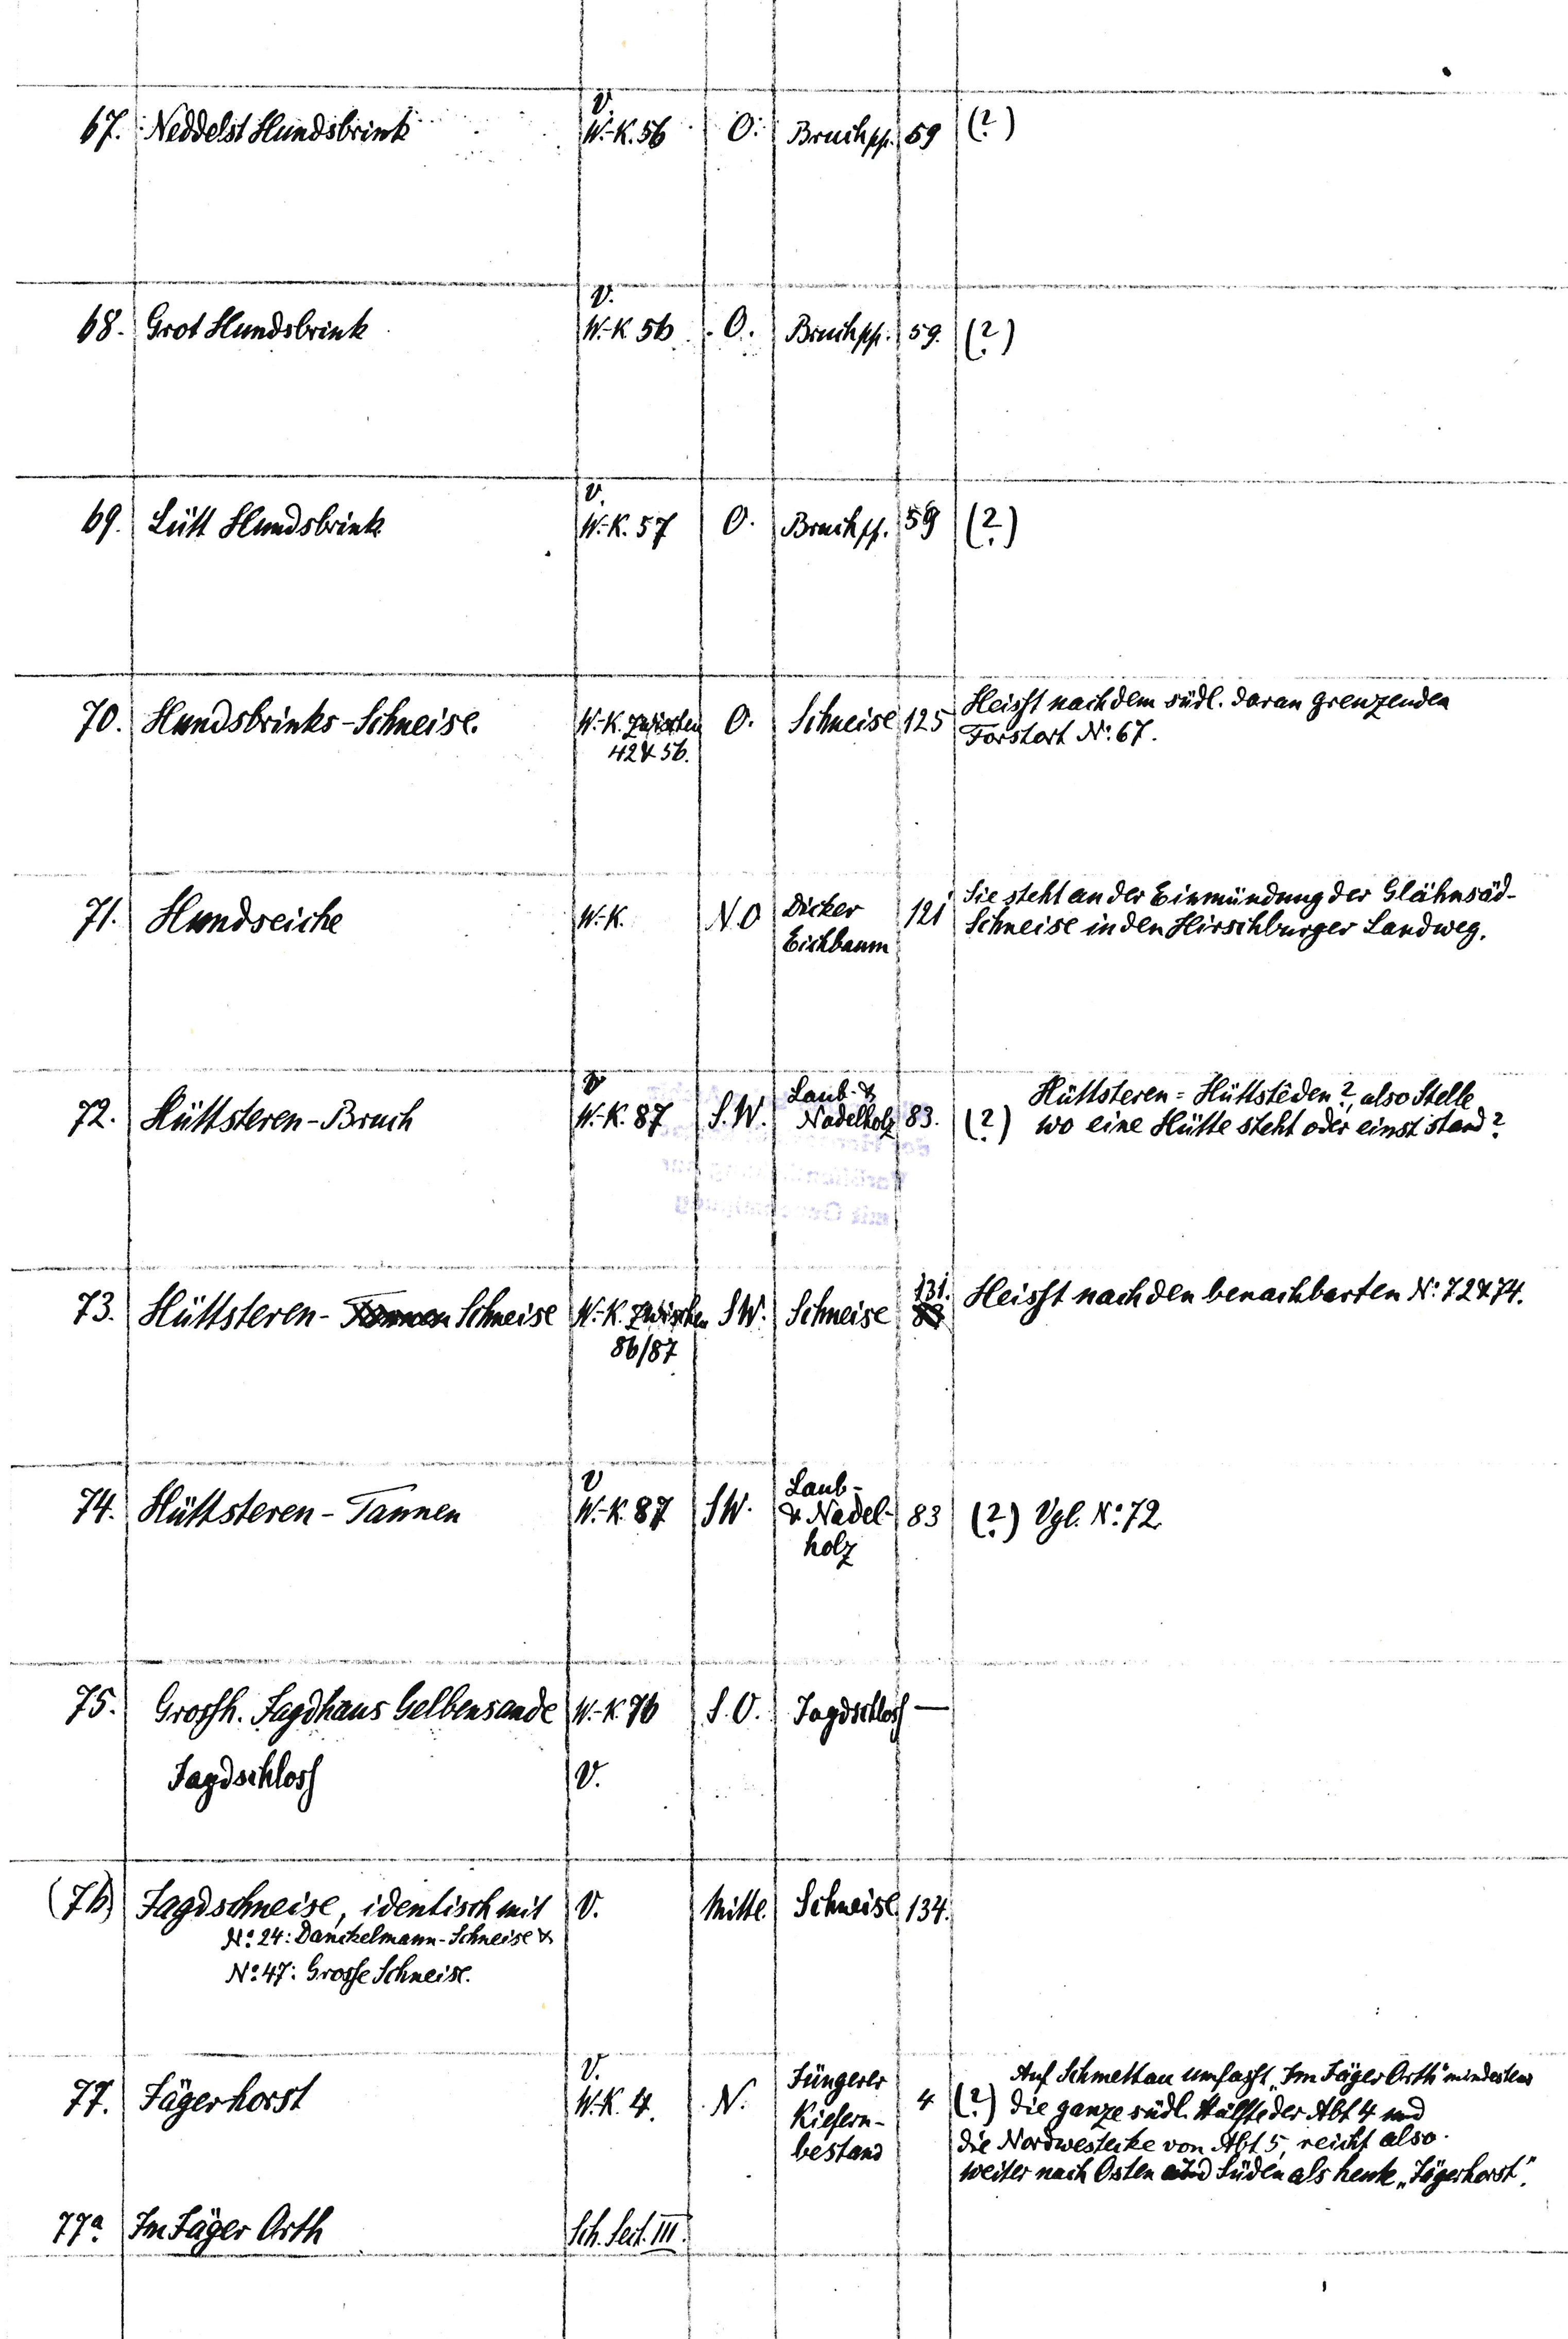 V.
67. Neddelst Hundsbrink W.-K. 56 O. Bruch pp. 59 (?)
V.
68. Grot Hundsbrink W.-K 56 O. Bruch pp. 59. (?)
V.
69. Lütt Hundsbrink W.-K. 57 O. Bruch pp. 59 (?)
70. Hundsbrinks-Schneise. W.-K. zwischen O. Schneise 125 Heisst nach dem südl. daran grenzenden
42 & 56. Forstort No. 67.
71. Hundseiche W.-K. N.O Dicker 121 Sie steht an der Einmündung der Glähnsäd-
Eichbaum Schneise in den Hirschburger Landweg.
V Laub- & Hüttsteren = Hüttstêden?, also Stelle
72. Hüttsteren-Bruch W.-K. 87 S.W. Nadelholz 83. (?) wo eine Hütte steht oder einst stand?
131.
73. Hüttsteren- Tannen Schneise W.-K. zwischen SW. Schneise Heisst nach den benachbarten No. 72 & 74.
86/87
V Laub-
74. Hüttsteren-Tannen W.-K. 87 SW. & Nadel- 83 (?) Vgl. No. 72.
holz
75. Grossh. Jagdhaus Gelbensande W.-K 76 S.O. Jagdschloss —
Jagdschloss V.
(76) Jagdschneise, identisch mit V. Mitte. Schneise 134.
No. 24: Danckelmann-Schneise &
No. 47: Grosse Schneise.
V. Jüngerer Auf Schmettau umfasst „Im Jäger Orth" mindestens
77. Jägerhorst W.-K. 4. N. Kiefern- 4 (?) die ganze südl. Hälfte der Abt 4 und
bestand die Nordwestecke von Abt. 5, reicht also
weiter nach Osten und Süden als heute „Jägerhorst".
77a. Im Jäger Orth Sch. Sect. III.